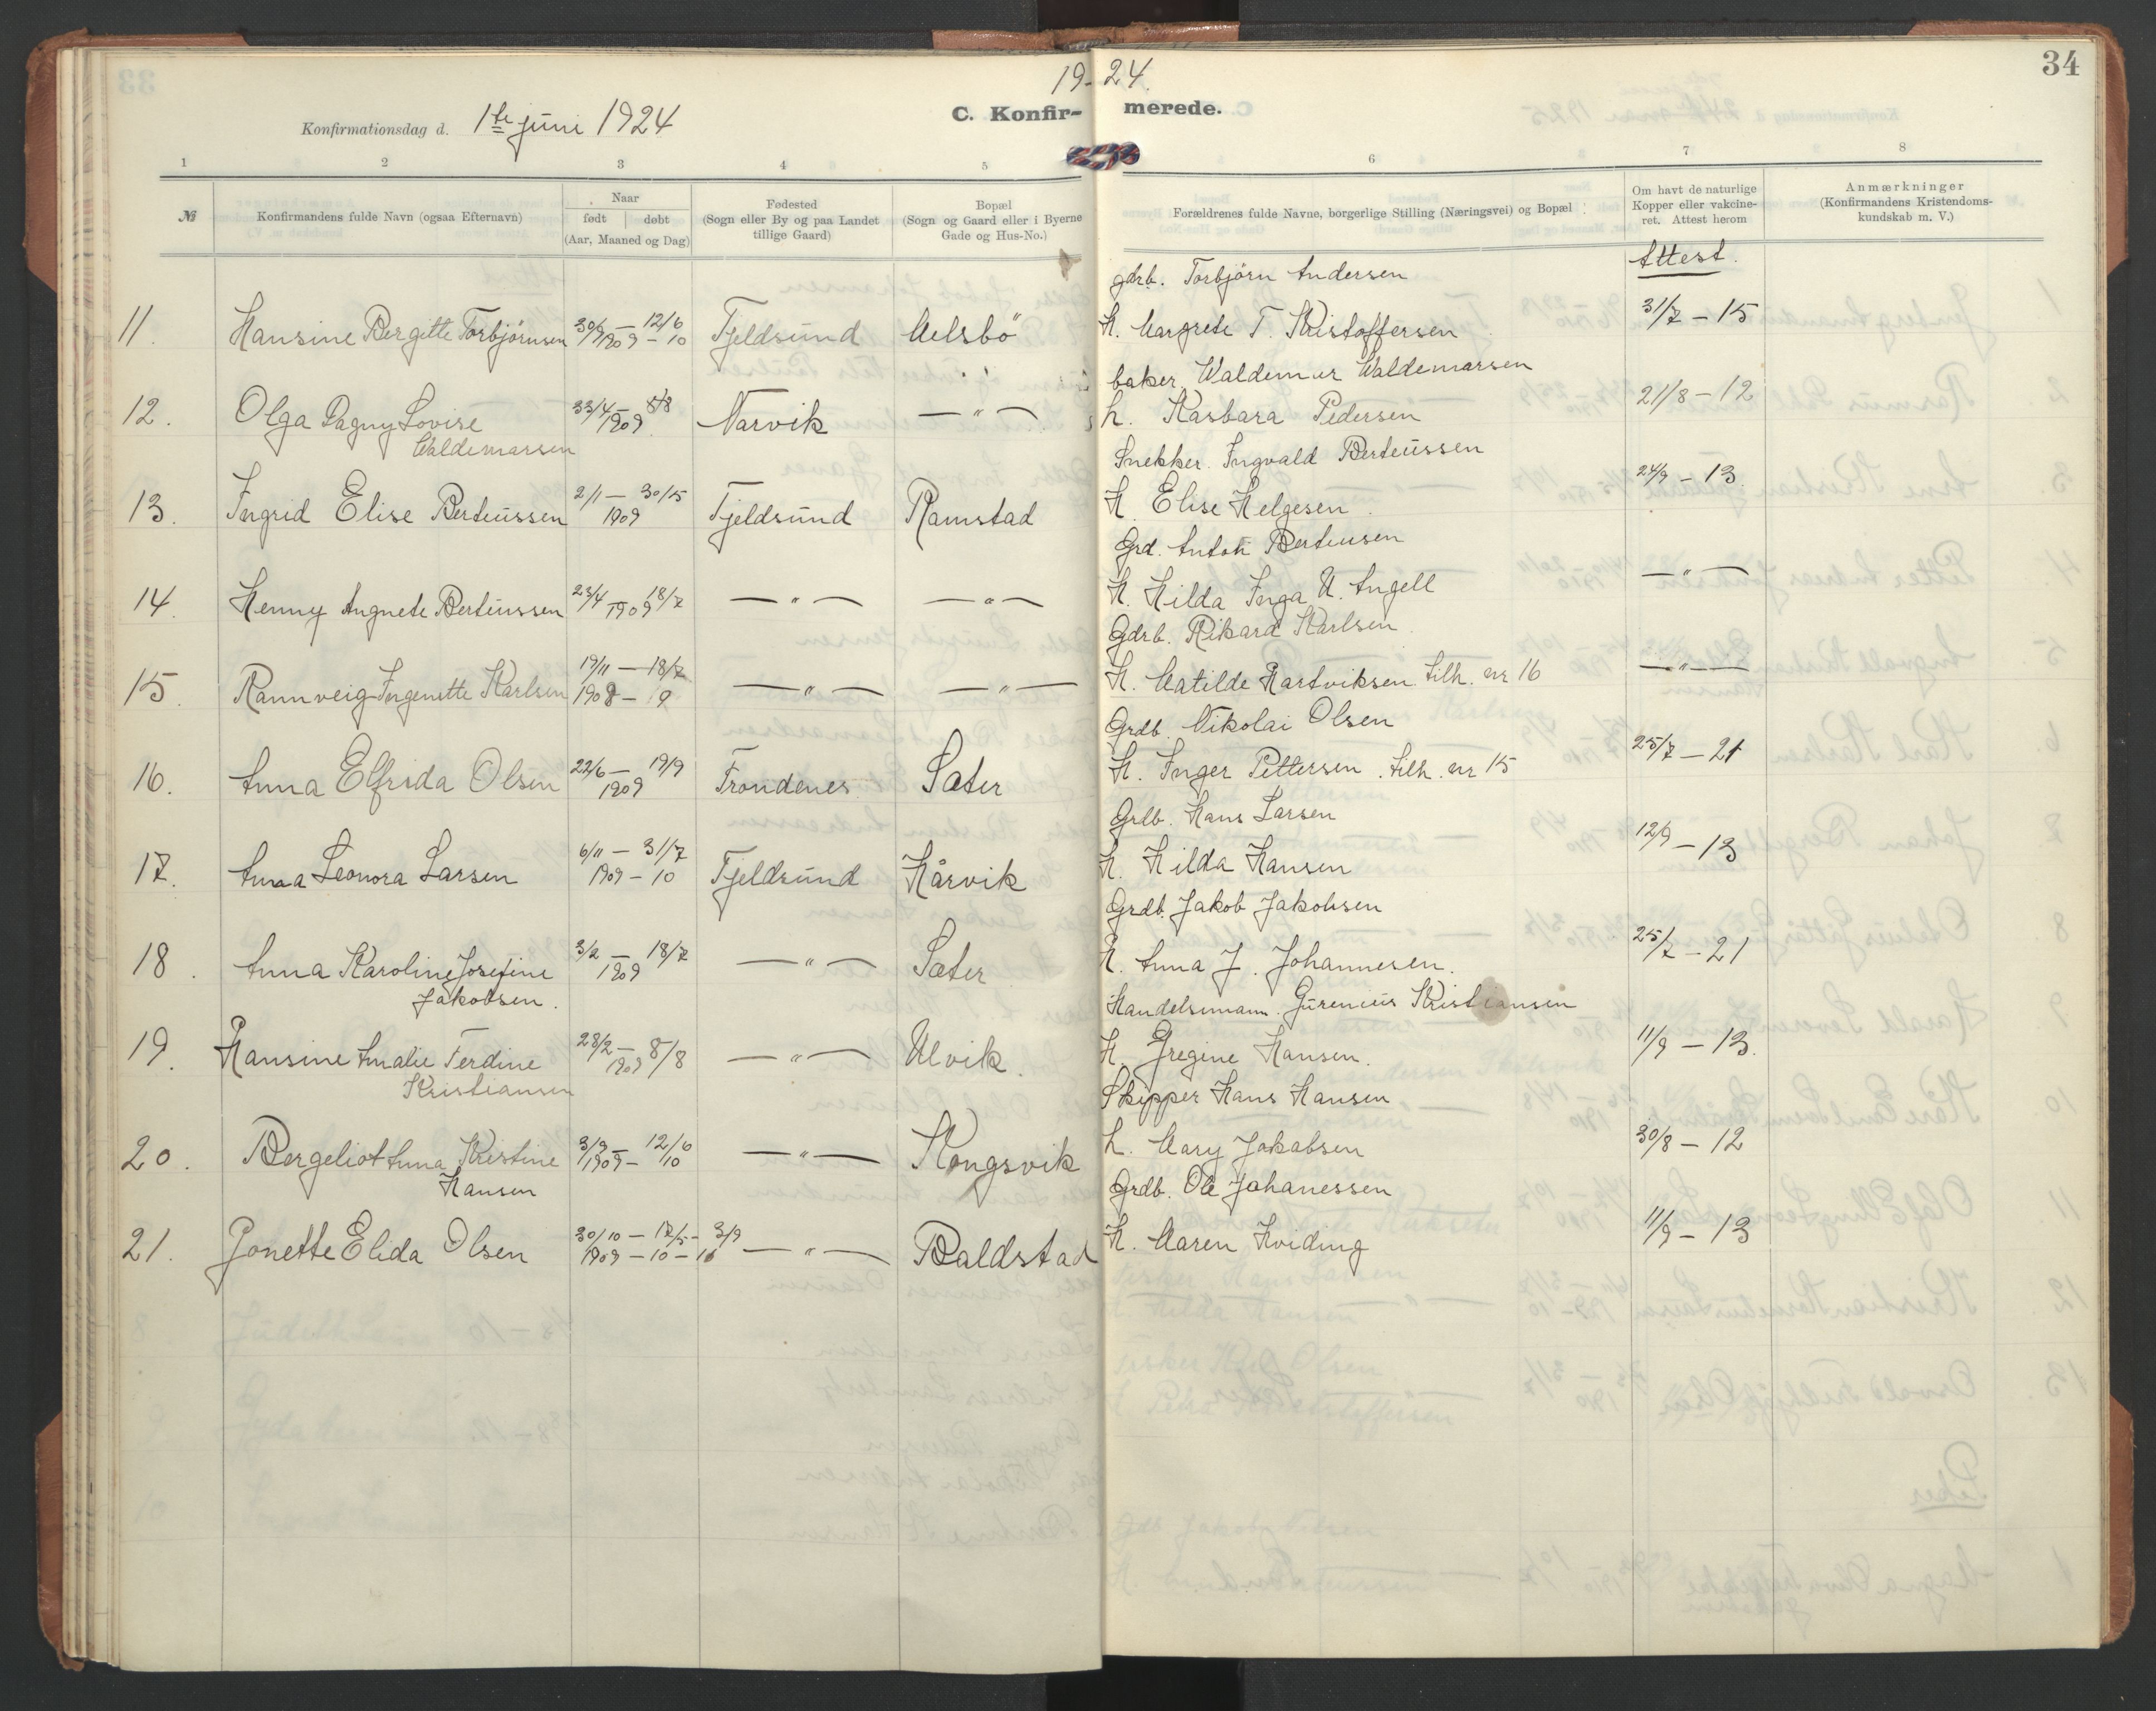 19-24.
34
Konfirmationsdag d. 1ste juni 1924
C. Konfirmerede.
1 2 3 4 5 6 7 8
№
Konfirmandens fulde Navn (ogsaa Efternavn)
Naar
født | døbt
(Aar, Maaned og Dag)
Fødested
(Sogn eller By og paa Landet
tillige Gaard)
Bopæl
(Sogn og Gaard eller i Byerne
Gade og Hus-No.)
Forældrenes fulde Navne, borgerlige Stilling (Næringsvei) og Bopæl
Om havt de naturlige
Kopper eller vakcine-
ret. Attest herom
Anmærkninger
(Konfirmandens Kristendoms-
kundskab m. V.)
Attest.
gdrb. Torbjörn Andersen
11. Hansine Bergitte Torbjörnsen 30/9 1909 – 12/6 – 10 Fjeldsund H. Margrete T. Kristoffersen 31/7 – 15
baker. Waldemar Waldemarsen
12. Olga Dagny Lovise 1909 8/8 Narvik — " — h. Kasbara Pedersen 21/8 – 12
Waldemarsen
Snekker. Ingvald Berteussen
13. Ingrid Elise Berteussen 2/1 — 30/5 1909 Fjeldsund Ramstad H. Elise Helgesen. 24/9 – 13.
Grd. Anton Berteusen
14. Henny Angnete Berteussen 23/4 – 18/7 1909 — " — — " — H. Hilda Inga U. Angell — " —
Gdrb. Rikard Karlsen
15. Rannveig Ingenette Karlsen 19/11 — 18/7 1908 – 9 — " — — " — H. Matilde Hartviksen tilh. nr 16 — " —
Grdb. Nikolai Olsen
16. Anna Elfrida Olsen 22/6 — 19/9 1909 Trondenes Sæter H. Inger Pettersen. tilh. nr 15 25/7 – 21
Grdb. Hans Larsen
17. Anna Leonora Larsen 6/11 — 31/7 1909 – 10 Fjeldsund Hårvik H. Hilda Hansen 12/9 – 13
Grdb. Jakob Jakobsen
18. Anna Karoline Josefine 3/2 — 18/7 1909 — " — Sæter H. Anna J. Johannesen. 25/7 – 21
Jakobsen.
Handelsmann. Gurenius Kristiansen
19. Hansine Amalie Ferdine 28/2 – 8/8 1909 — " — Ulvik. H. Gregine Hansen. 11/9 – 13.
Kristiansen
Skipper Hans Hansen
20. Bergeliot Anna Kristine 3/9 – 12/6 1909 – 10 — " — Kongsvik h. Mary Jakobsen 30/8 – 12
Hansen
Grdb. Ole Johanessen
21. Jonette Elida Olsen 30/10 – 17/5 – 3/9 1909 – 10 – 16 — " — Baldstad H. Maren Hviding 11/9 – 13